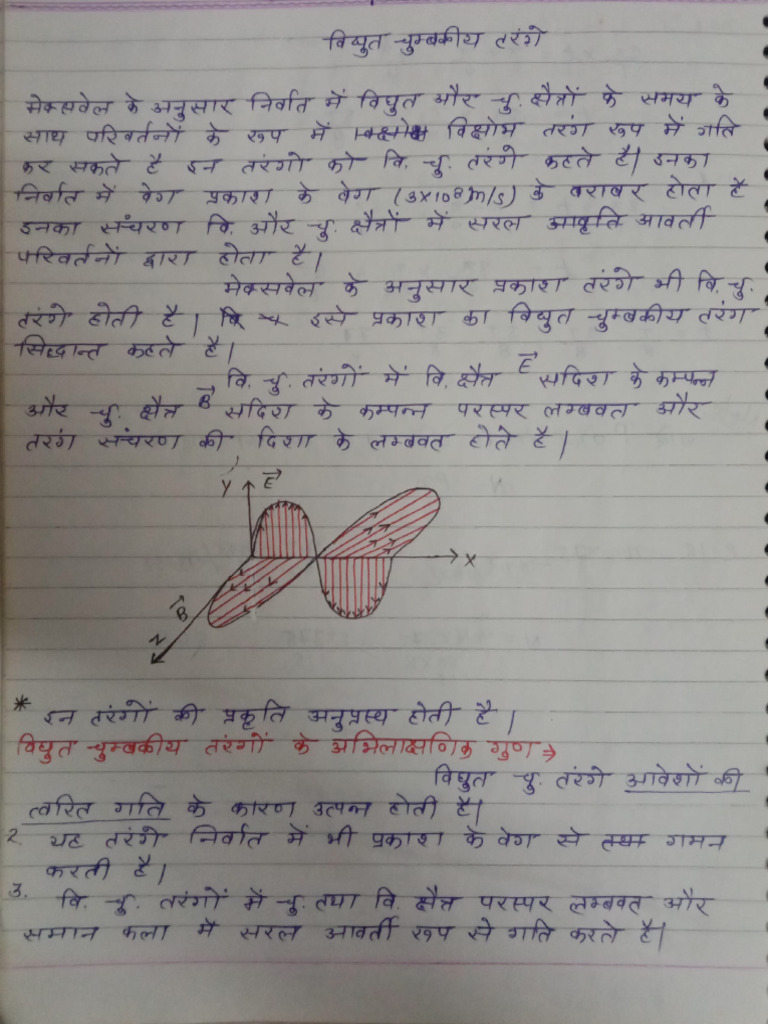 विद्युत चुम्बकीय तरंगे
मेक्सवेल के अनुसार निर्वात में विद्युत और चु. क्षैत्रों के समय के
साथ परिवर्तनों के रूप में विक्षोभ तरंग रूप में गति
कर सकते है इन तरंगो को वि. चु. तरंगे कहते है। इनका
निर्वात में वेग प्रकाश के वेग (3×10⁸)m/s) के बराबर होता है
इनका संचरण वि. और चु. क्षैत्रों में सरल आवृति आवर्ती
परिवर्तनों द्वारा होता है।
मेक्सवेल के अनुसार प्रकाश तरंगे भी वि. चु.
तरंगे होती है। इसे प्रकाश का विद्युत चुम्बकीय तरंग
सिद्धान्त कहते है।
वि. चु. तरंगों में वि. क्षैत्र E⃗ सदिश के कम्पन्न
और चु. क्षैत्र B⃗ सदिश के कम्पन्न परस्पर लम्बवत और
तरंग संचरण की दिशा के लम्बवत होते है।
Y E⃗
X
B⃗
Z
* इन तरंगों की प्रकृति अनुप्रस्थ होती है।
विद्युत चुम्बकीय तरंगों के अभिलाक्षणिक गुण ⇒
विद्युत चु. तरंगे आवेशों की
त्वरित गति के कारण उत्पन्न होती है।
2. यह तरंगे निर्वात में भी प्रकाश के वेग से गमन
करती है।
3. वि. चु. तरंगों में चु. तथा वि. क्षैत्र परस्पर लम्बवत और
समान कला में सरल आवर्ती रूप से गति करते है।